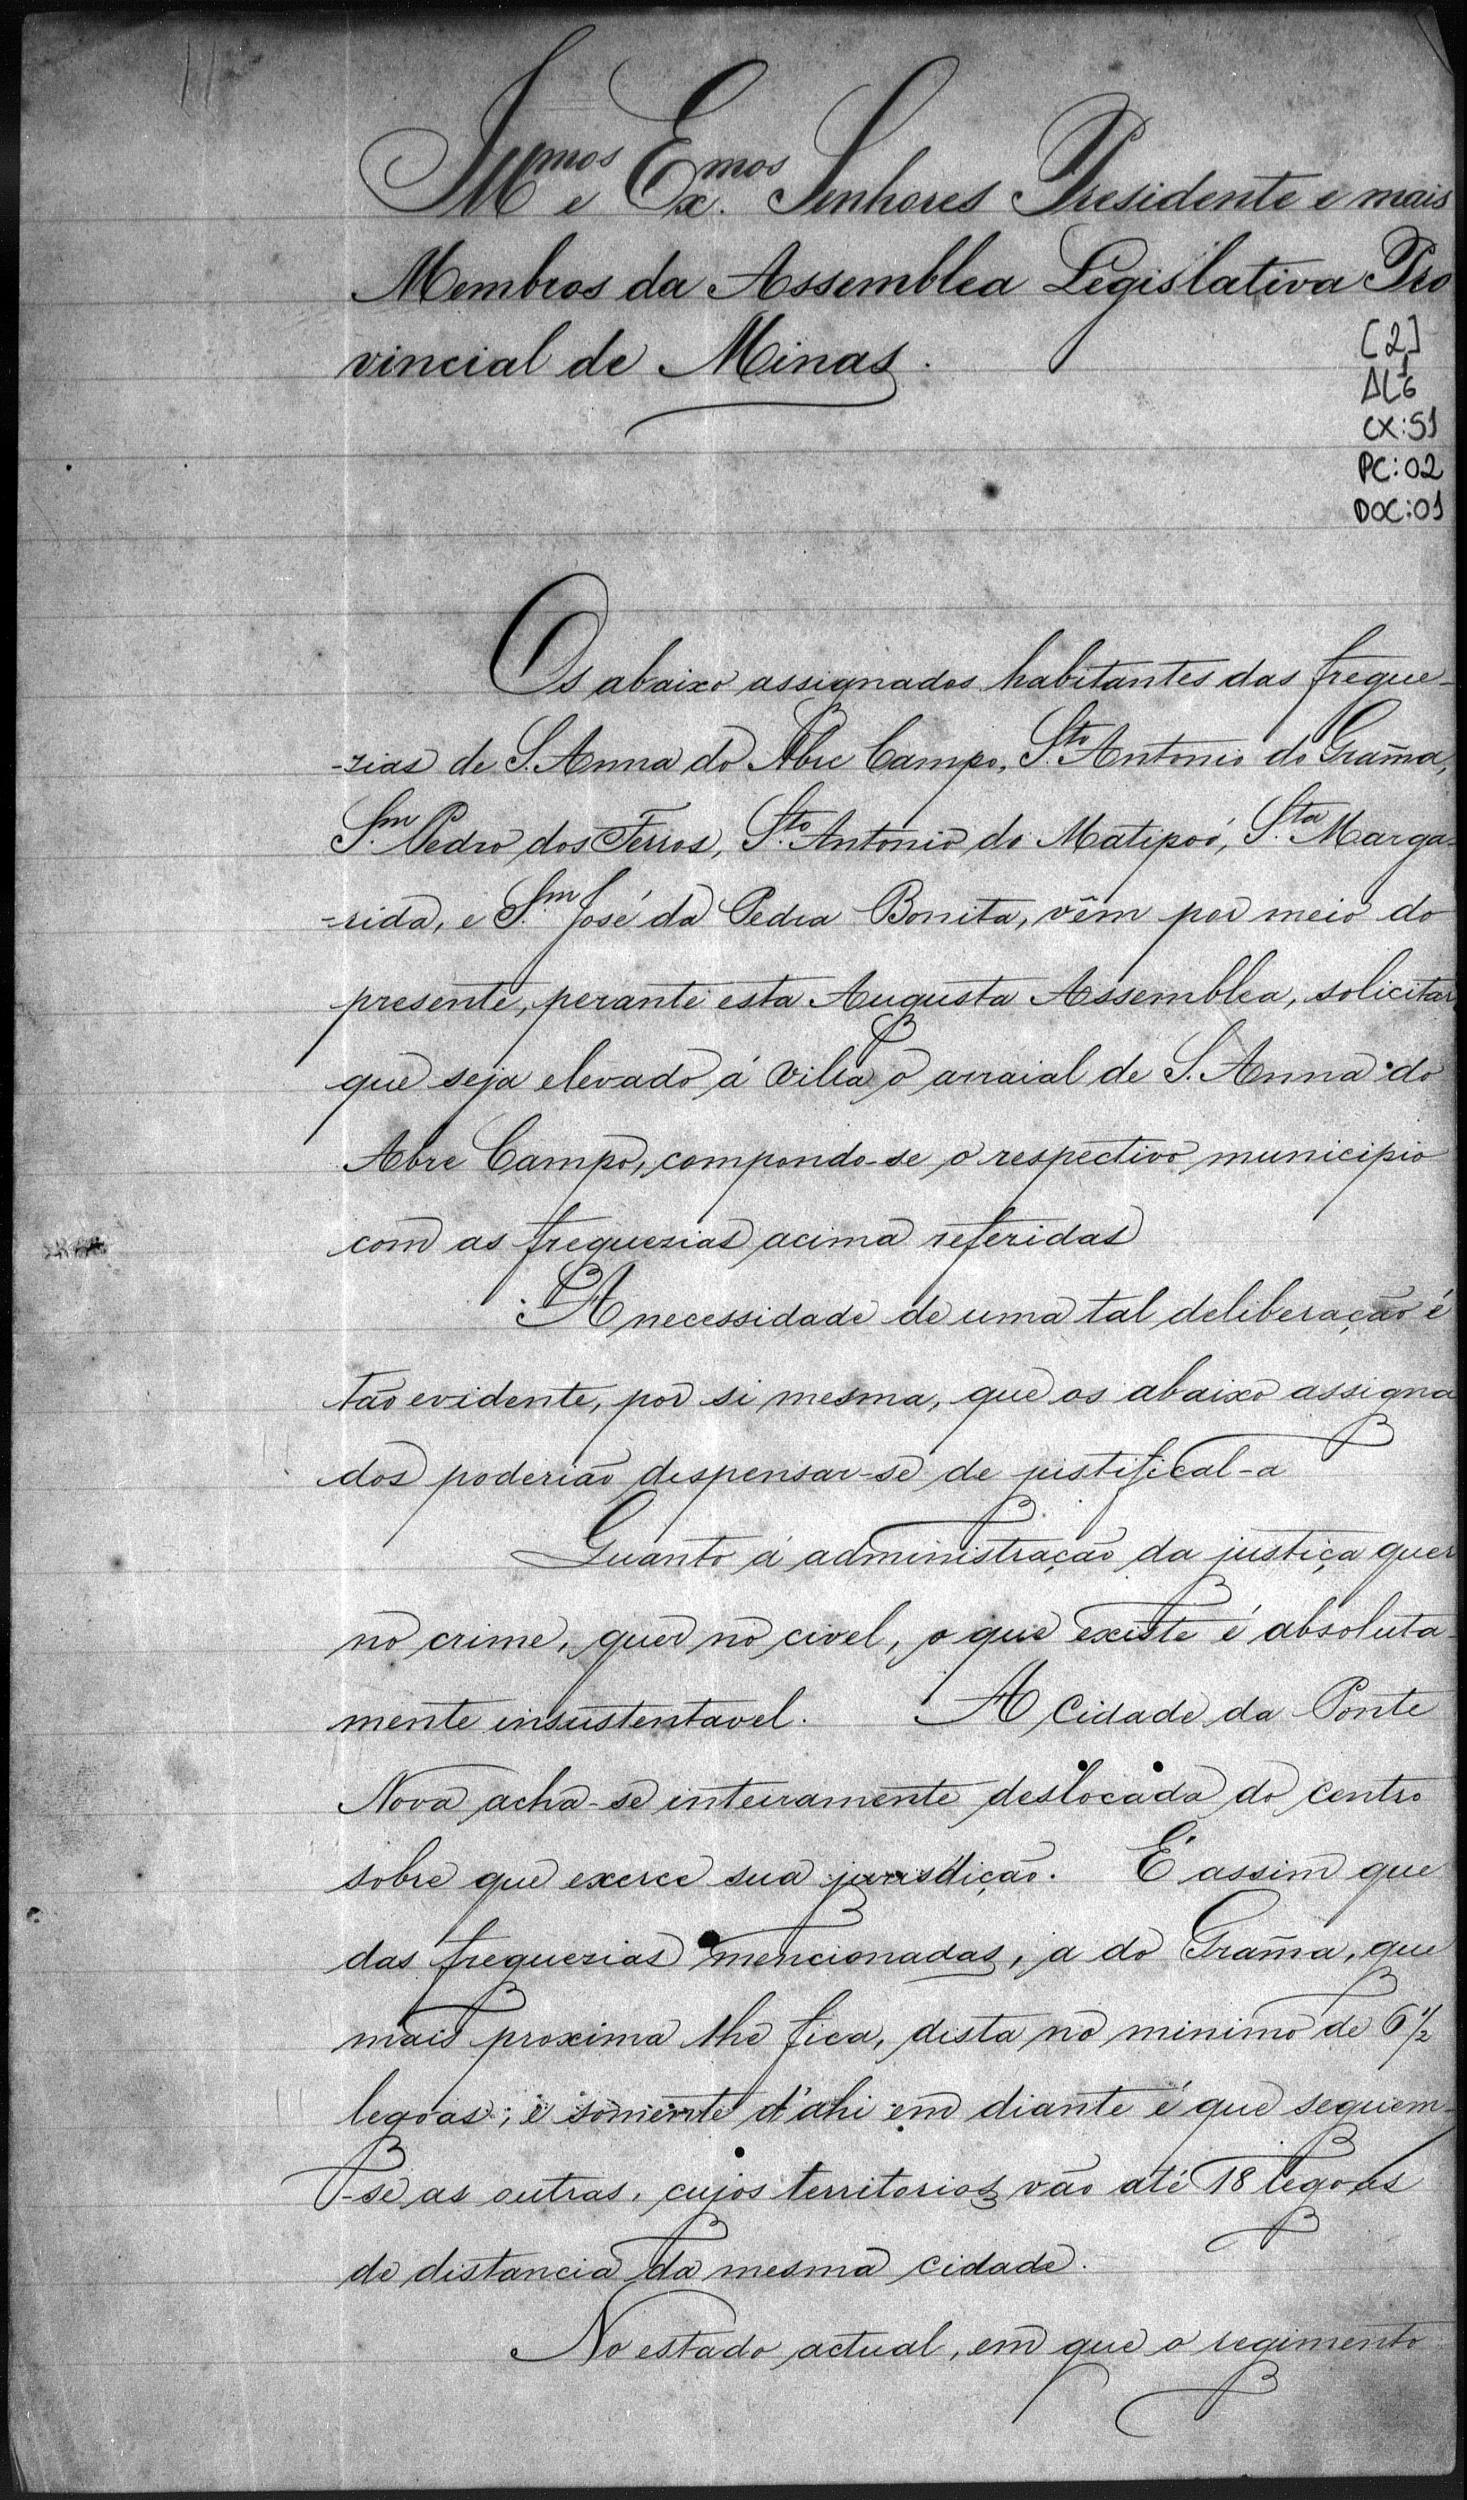 Illmos e Exmos. Senhores Presidente e mais
Membros da Assemblea Legislativa Pro
vincial de Minas.
[2]
AL 1 6
CX: 51
PC: 02
DOC: 01
Os abaixo assignados habitantes das fregue-
-zias de S. Anna do Abre Campo, Sto. Antonio do Gramma,
Sm. Pedro dos Ferros, Sto. Antonio do Matipoó, Sta. Marga-
-rida, e Sm. José da Pedra Bonita, vêm por meio do
presente, perante esta Augusta Assemblea, solicitar
que seja elevado á Villa o arraial de S. Anna do
Abre Campo, compondo-se o respectivo municipio
com as freguezias acima referidas
A necessidade de uma tal deliberação é
tão evidente, por si mesma, que os abaixo assigna
dos poderião dispensar-se de justifical-a
Quanto á administração da justiça quer
no crime, quer no civel, o que existe é absoluta-
mente insustentavel. A Cidade da Ponte
Nova acha-se inteiramente deslocada do centro
sobre que exerce sua jurisdição. É assim que
das freguezias mencionadas, a do Gramma, que
mais proxima lhe fica, dista no minimo de 6 1/2
legoas; e somente d'ahi em diante é que seguem-
-se as outras, cujos territorios vão até 18 legoas
de distancia da mesma cidade.
No estado actual, em que o regimento